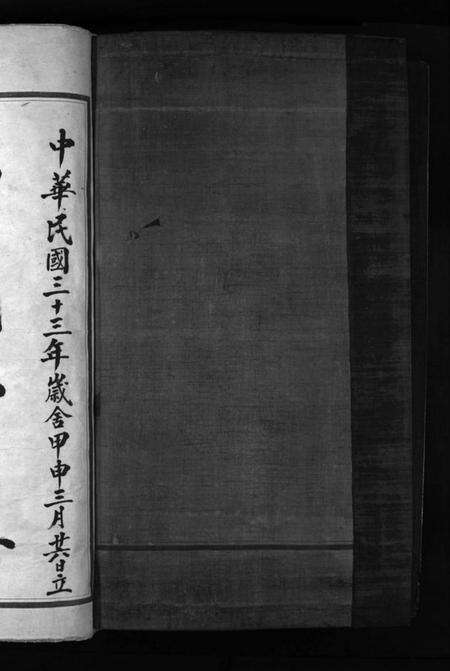 中華民國三十三年歲舍甲申三月廿六日立